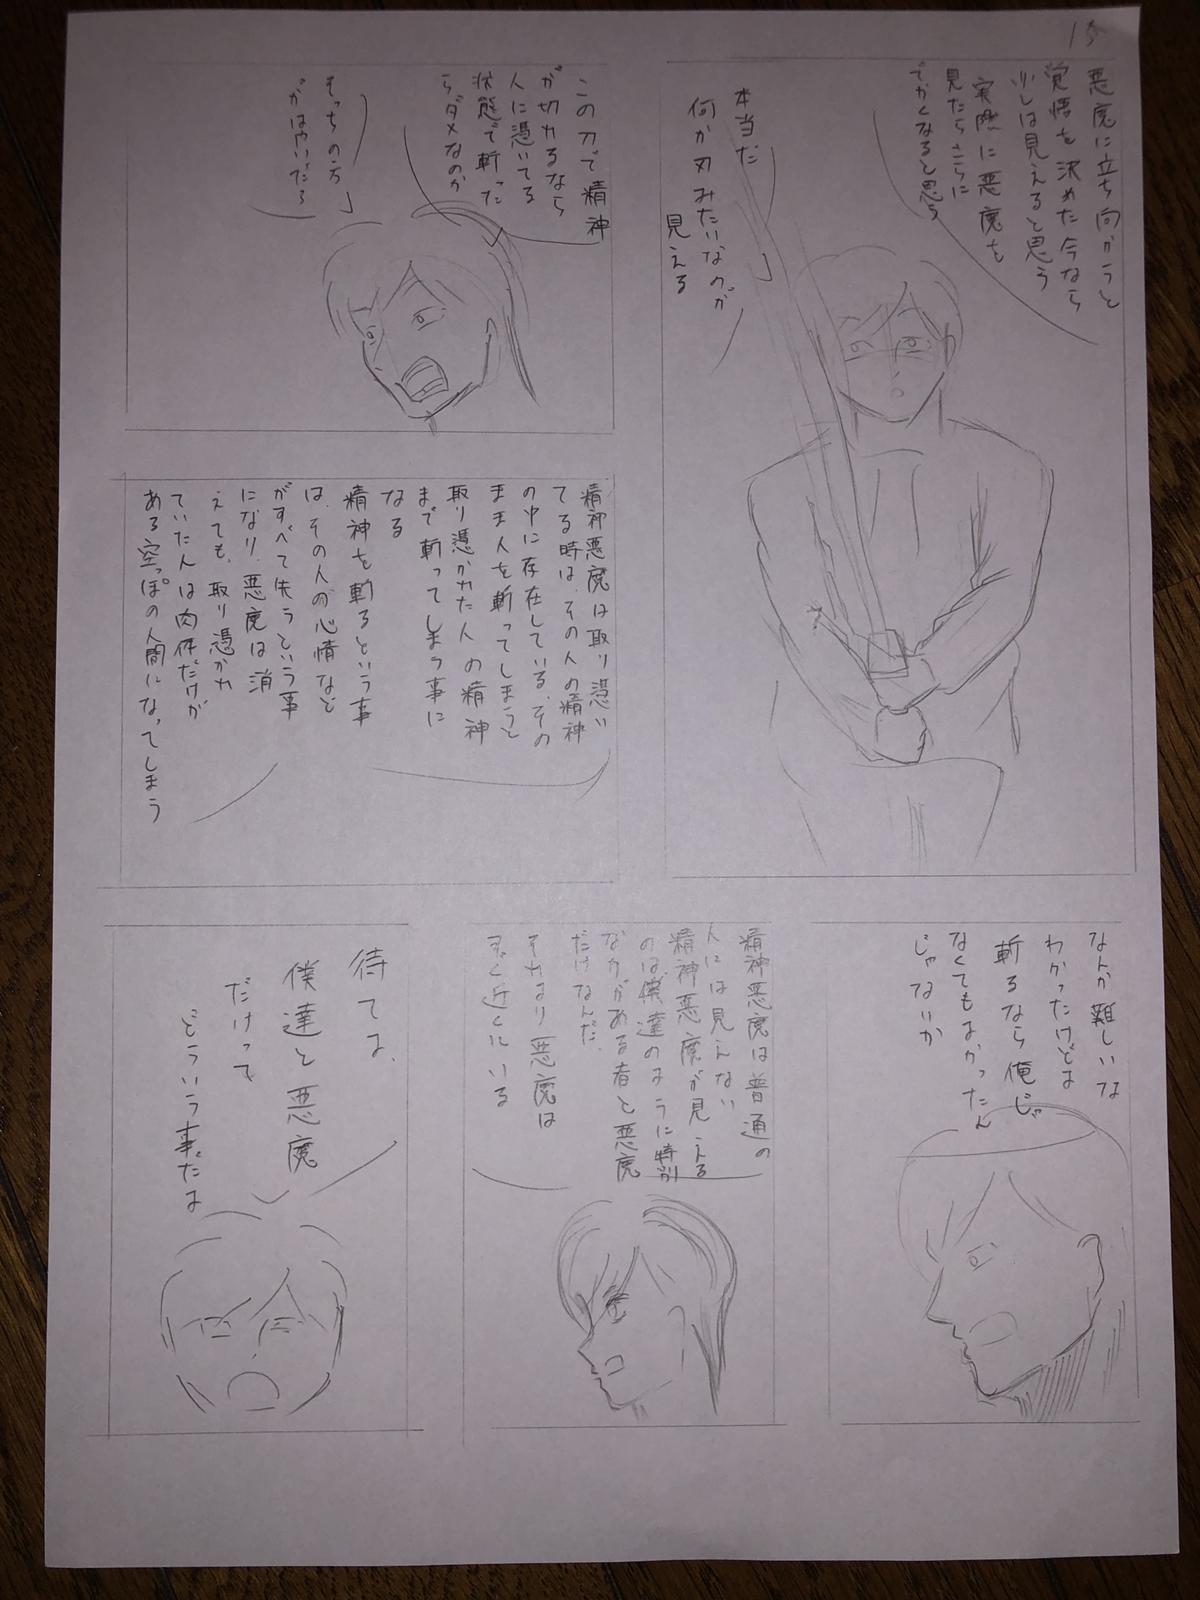 15
悪魔に立ち向かうと
覚悟を決めた今なら
少しは見えると思う
実際に悪魔を
見たらさらに
でかくなると思う
本当だ
何か刃みたいなのが
見える
この刀で精神
が切れるなら
人に憑いてる
状態で斬った
らダメなのか
そっちの方
がはやいだろ
精神悪魔は取り憑い
てる時は、その人の精神
の中に存在している、その
まま人を斬ってしまうと
取り憑かれた人の精神
まで斬ってしまう事に
なる
精神を斬るという事
は、その人の心情など
がすべて失うという事
になり、悪魔は消
えても、取り憑かれ
ていた人は肉体だけが
ある空っぽの人間になってしまう
なんか難しいな
わかったけどよ
斬るなら俺じゃ
なくてもよかったん
じゃないか
精神悪魔は普通の
人には見えない
精神悪魔が見える
のは僕達のように特別
なかがある者と悪魔
だけなんだ、
それより悪魔は
すぐ近くにいる
待てよ、
僕達と悪魔
だけって
どういう事だよ